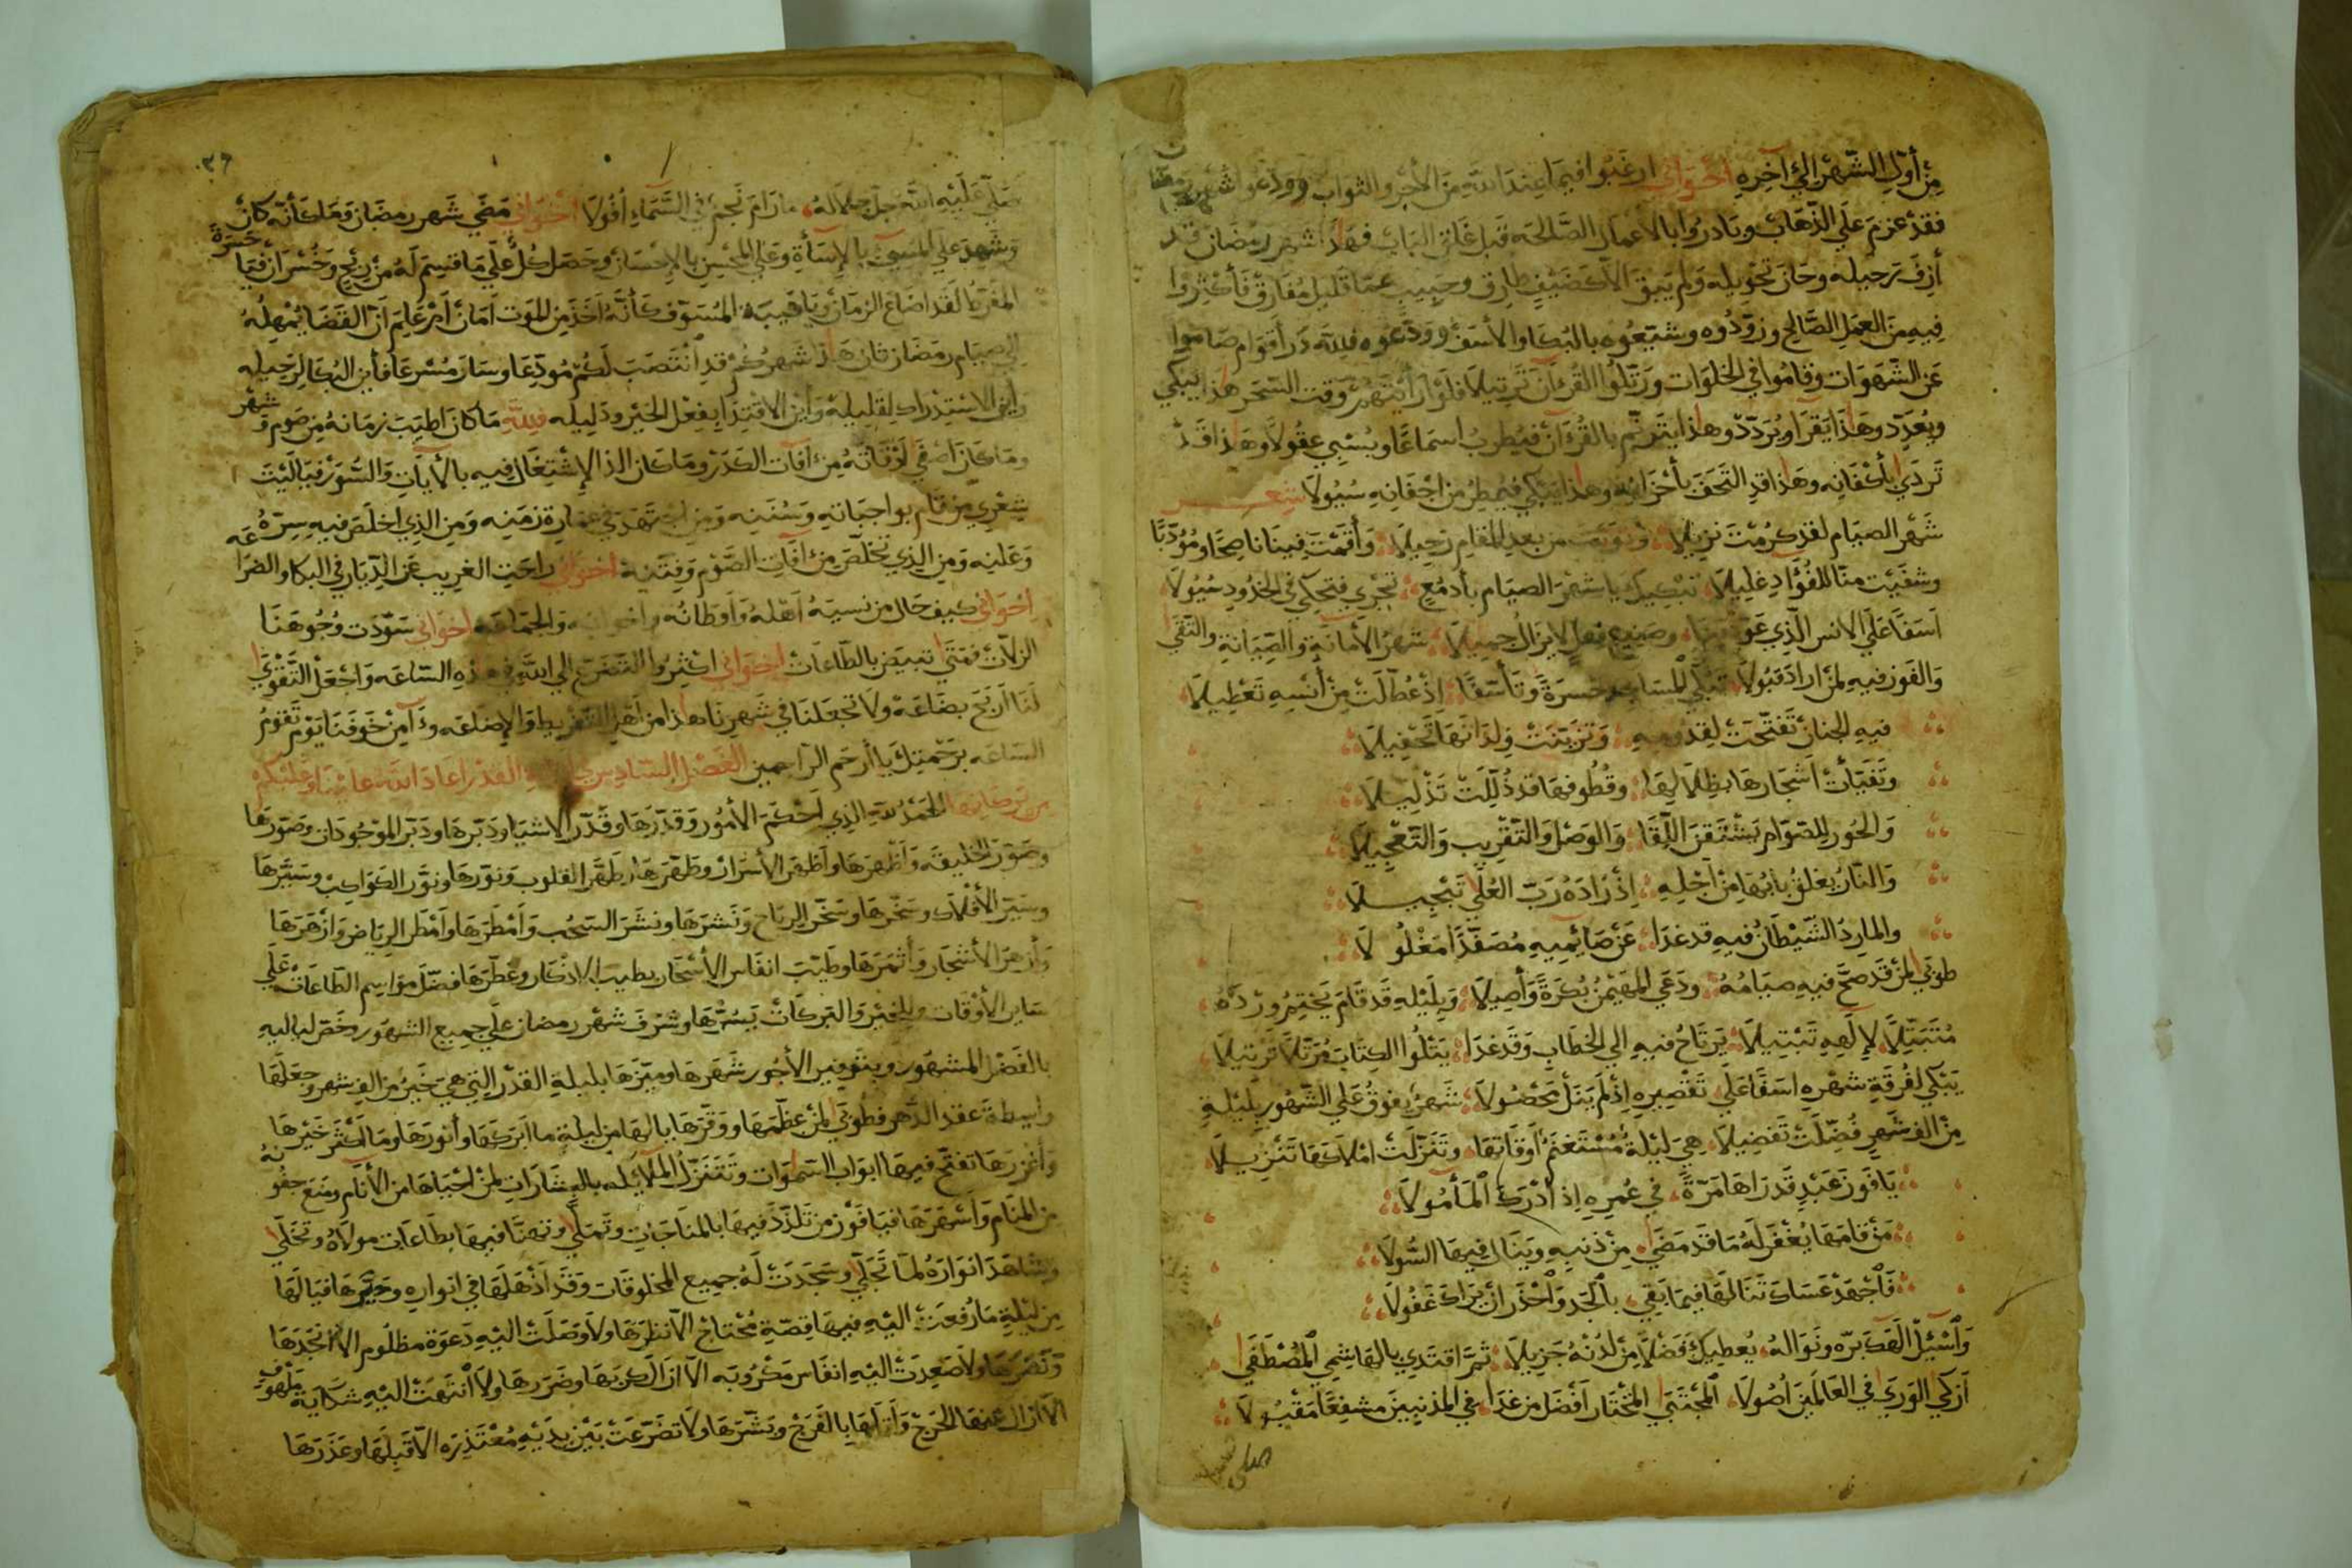 من أول الشهر إلى آخره إخواني ارغبوا فيما عند الله من الأجر والثواب وودعوا شهر رمضا
فقد عزم على الذهاب وبادروا بالأعمال الصالحه قبل غلق الباب فهذا شهر رمضان قد
أزف رحيله وحان تحويله ولم يبق الا كضيف طارق وحبيب عما قليل مفارق فأكثروا
فيه من العمل الصالح وزودوه وشيعوه بالبكا والأسف وودعوه فلله در أقوام صاموا
عن الشهوات وقاموا في الخلوات ورتلوا القرآن ترتيلا فلو رأيتهم وقت السحر هذا يبكي
ويعدد وهذا يقرا ويردد وهذا يترنم بالقرءان فيطرب اسماعا ويسبي عقولا وهذا قد
تردي بأكفانه وهذا قد التحف بأحزانه وهذا يبكي فيمطر من اجفانه سيولا شعر
شهر الصيام لقد كرمت نزيلا ونويت من بعد المقام رحيلا وأقمت فينا ناصحا ومؤدبا
وشفيت منا للفؤاد غليلا تبكيك يا شهر الصيام بأدمع تجري فتحكي في الخدود سيولا
اسفا على الانس الذي عودتنا وصنيع فعل لا يزال جميلا شهر الأمانة والصيانة والتقى
والفوز فيه لمن اراد قبولا تبكي المساجد حسرة وتأسفا إذ عطلت من أنسه تعطيلا
فيه الجنان تفتحت لقدومه وتزينت ولدانها تحفيلا
وتفيأت اشجارها بظلالها وقطوفها قد ذللت تذليلا
والحور للصوام يشتقن اللقا والوصل والتقريب والتعجيلا
والنار يغلق بابها من أجله إذ زاده رب العلى تبجيلا
والمارد الشيطان فيه قد غدا عن صائميه مصفدا مغلولا
طوبى لمن قد صح فيه صيامه ودعى المهيمن بكرة وأصيلا وبليله قد قام يختم ورده
متبتلا لإلهه تبتيلا يرتاح فيه الي الخطاب وقد غدا يتلوا الكتاب مرتلا ترتيلا
يبكي لفرقة شهره اسفا على تقصيره إذ لم ينل محصولا شهر يفوق على الشهور بليلة
من الف شهر فضلت تفضيلا هي ليلة مستغنم أوقاتها وتنزلت املاكها تنزيلا
يا فوز عبد قد راها مرة في عمره إذ أدرك المأمولا
من قامها يغفر له ما قد مضى من ذنبه وينال فيها السولا
فاجهد عساك تنالها فيما بقي بالجد واحذر ان يراك غفولا
واسئل الهك بره ونواله يعطيك فضلا من لدنه جزيلا ثم اقتدي بالهاشمي المصطفى
أزكي الورى في العالمين اصولا المجتبى المختار أفضل من غدا في المذنبين مشفعا مقبولا
صلى
٣٦
صلى عليه الله جل جلاله ما رام نجم في السماء أفولا إخواني مضى شهر رمضان وما كأنه كان
وشهد علي المسيئ بالإسأة وعلي المحسن بالإحسان وحصل كل على ما قسم له من ربح وخسران فيا حسرة
المفرط لقد اضاع الزمان ويا خيبة المسوف كأنه اخذ من الموت امان أم علم ان القضا يمهله
الي صيام رمضان ثان هذا شهركم قد انتصب لكم مودعا وسار مسرعا فأين البكا لرحيله
وأين الاستدراك لقليله وأين الاقتدا بفعل الخير ودليله فلله ما كان اطيب زمانه من صوم وشهر
وما كان اصفى اوقاته من آفات الكدر وما كان الذ الإشتغال فيه بالأيات والسور فياليت
شعري من قام بواجباته وسننه ومن اجتهد في عمارة زمنه ومن الذي اخلص فيه سره
وعلنه ومن الذي تخلص من آفات الصوم وفتنه اخواني راحت الغريب عن الديار في البكا والضراعه
إخواني كيف حال من نسيه اهله وأوطانه واخوانه والجماعه اخواني سودت وجوهنا
الزلات فمتى تبيض بالطاعات إخواني اكثروا التضرع الى الله في هذه الساعه واجعل التقوى
لنا أربح بضاعه ولا تجعلنا في شهرنا هذا من اهل التفريط والإضاعه وءآمن خوفنا يوم تقوم
الساعه برحمتك يا أرحم الراحمين الفصل السادس ليلة القدر اعاد الله علينا وعليكم
من بركاتها الحمد لله الذي احكم الأمور وقدرها وقدر الاشيا ودبرها ودبر الموجودات وصورها
وصور الخليقه وأظهرها وأظهر الأسرار وطهرها وطهر القلوب ونورها ونور الكواكب وسيرها
وسير الأفلاك وسخرها وسخر الرياح ونشرها ونشر السحب وأمطرها وأمطر الرياض وازهرها
وأزهر الأشجار وأثمرها وطيب انفاس الأسحار بطيب الاذكار وعطرها فضل مواسم الطاعات على
ساير الأوقات وبالخير والبركات يسرها وشرف شهر رمضان على جميع الشهور وخص لياليه
بالفضل المشهور وبتوفير الأجور شهرها وميزها بليلة القدر التي هي خير من الف شهر وجعلها
واسطة عقد الدهر فطوبى لمن عظمها ووقرها يا لها من ليلة ما ابركها وأنورها وما أكثر خيرها
وأغزرها تفتح فيها ابواب السموات وتتنزل الملائكه بالبشارات لمن احياها من الأنام ومنع جفونه
من المنام وأسهرها فيا فوز من تلذذ فيها بالمناجات وتملى وتهنا فيها بطاعات مولاه وتخلى
وشاهد انواره لما تجلى وسجدت له جميع المخلوقات وقد أذهلها في انواره وحيرها فيا لها
من ليلة ما رفعت اليه فيها قصة محتاج الا نظرها ولا وصلت اليه دعوة مظلوم الا انجدها
ونصرها ولا صعدت اليه انفاس مكروبه الا ازال كربها وضررها ولا انتهت اليه شكاية ملهوف
الا ازال عنها الحرج وأتالها بالفرج وبشرها ولا تضرعت بين يديه معتذره الا قبلها وعذرها